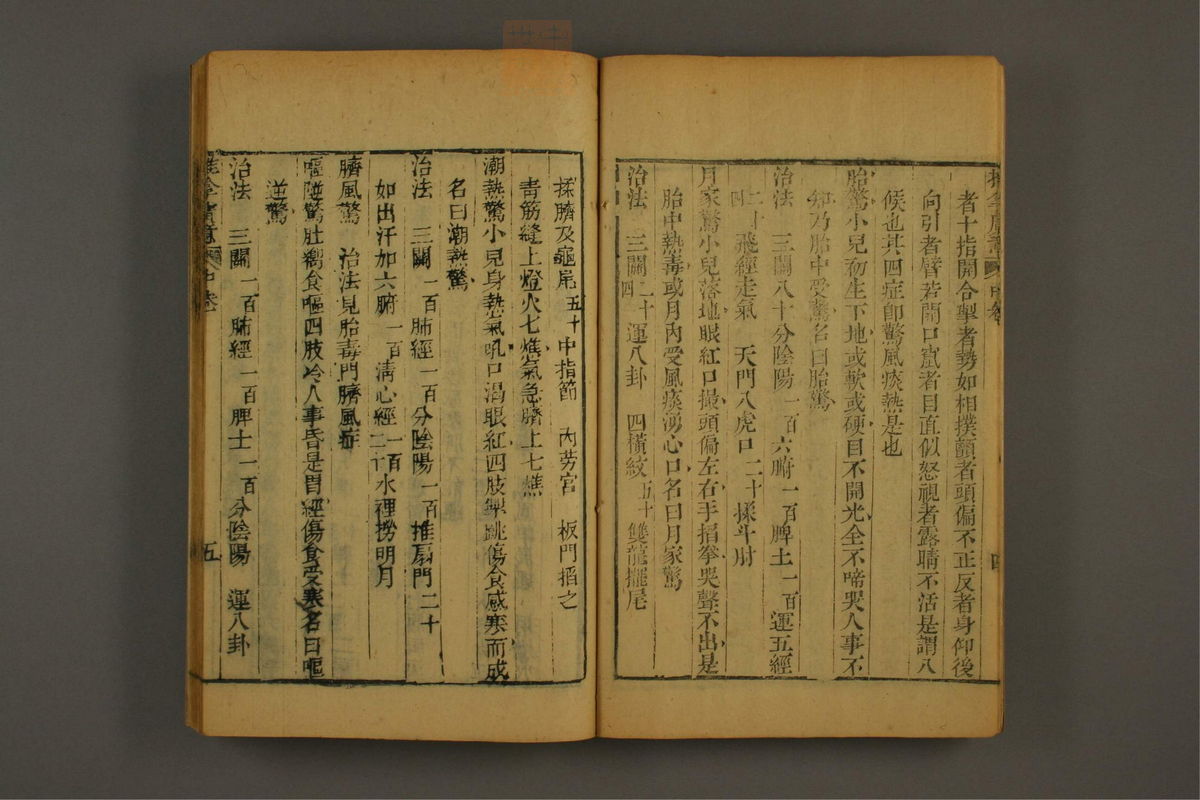 者十指開合掣者勢如相撲顫者頭偏不正反者身仰後
向引者臂若開口竄者目直似怒視者露睛不活是謂八
候也其四症卽驚風痰熱是也
胎驚小兒初生下地或軟或硬目不開光全不啼哭人事不
知乃胎中受驚名曰胎驚
治法 三關八十分陰陽一百六腑一百脾土一百運五經
二十飛經走氣 天門入虎口二十揉斗肘
月家驚小兒落地眼紅口撮頭偏左右手揝拳哭聲不出是
胎中熱毒或月內受風痰湧心口名曰月家驚
治法 三關二十四運八卦 四橫紋五十雙龍擺尾
四
揉臍及龜尾五十中指節 內勞宮 板門掐之
青筋縫上燈火七燋氣急臍上七燋
潮熱驚小兒身熱氣吼口渴眼紅四肢掣跳傷食感寒而成
名曰潮熱驚
治法 三關一百肺經一百分陰陽一百推扇門二十
如出汗加六腑一百清心經一百二十水裡撈明月
臍風驚 治法見胎毒門臍風症
嘔逆驚肚脹食嘔四肢冷人事昏是胃經傷食受寒名曰嘔
逆驚
治法 三關一百肺經一百脾土一百分陰陽 運八卦
五